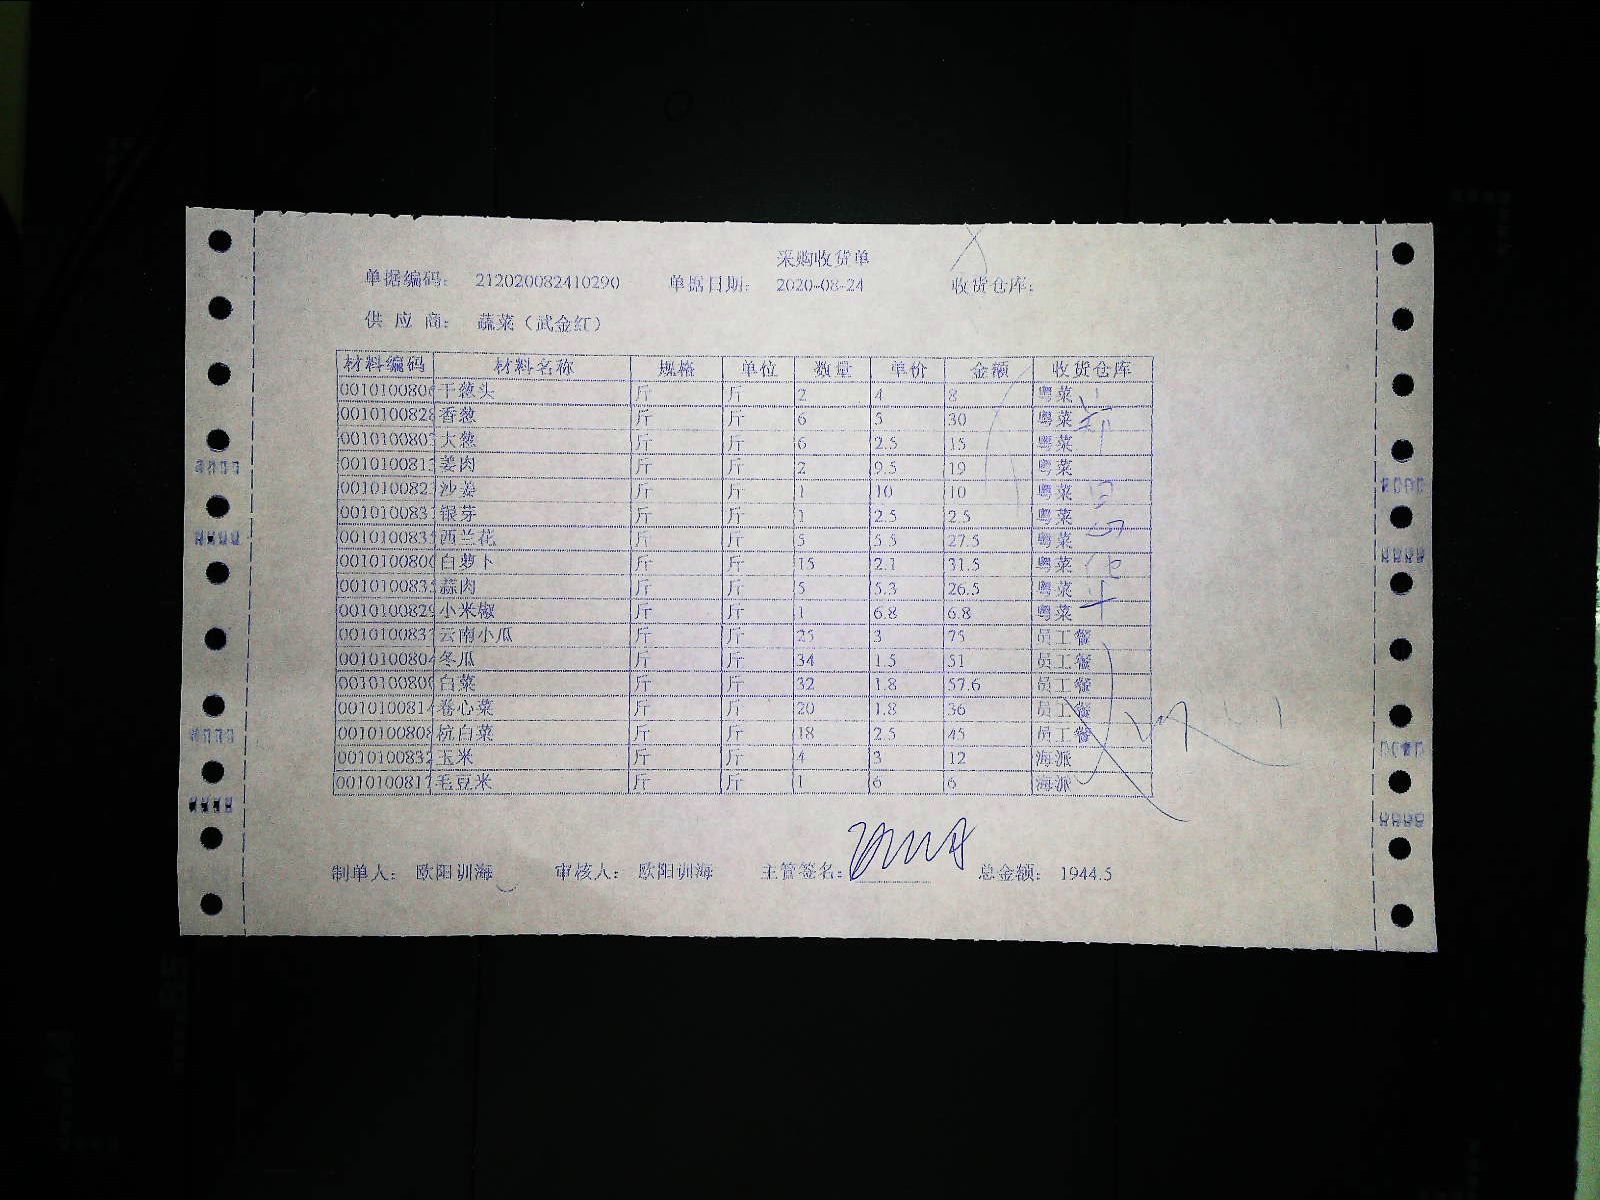 采购收货单
单据编码： 212020082410290 单据日期： 2020-08-24 收货仓库：
供 应 商： 蔬菜（武金红）
材料编码 材料名称 规格 单位 数量 单价 金额 收货仓库
0010100806 干葱头 斤 斤 2 4 8 粤菜
0010100828 香葱 斤 斤 6 5 30 粤菜
001010080 大葱 斤 斤 6 2.5 15 粤菜
001010081 姜肉 斤 斤 2 9.5 19 粤菜
001010082 沙姜 斤 斤 1 10 10 粤菜
001010083 银芽 斤 斤 1 2.5 2.5 粤菜
001010083 西兰花 斤 斤 5 5.5 27.5 粤菜
001010080 白萝卜 斤 斤 15 2.1 31.5 粤菜
001010083 蒜肉 斤 斤 5 5.3 26.5 粤菜
0010100829 小米椒 斤 斤 1 6.8 6.8 粤菜
001010083 云南小瓜 斤 斤 25 3 75 员工餐
001010080 冬瓜 斤 斤 34 1.5 51 员工餐
001010080 白菜 斤 斤 32 1.8 57.6 员工餐
001010081 卷心菜 斤 斤 20 1.8 36 员工餐
0010100808 杭白菜 斤 斤 18 2.5 45 员工餐
0010100832 玉米 斤 斤 4 3 12 海派
0010100817 毛豆米 斤 斤 1 6 6 海派
制单人： 欧阳训海 审核人： 欧阳训海 主管签名： 总金额： 1944.5